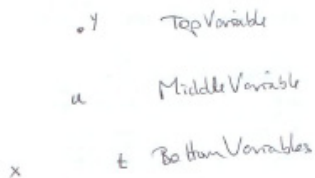 y Top Variable
u Middle Variable
x t Bottom Variables